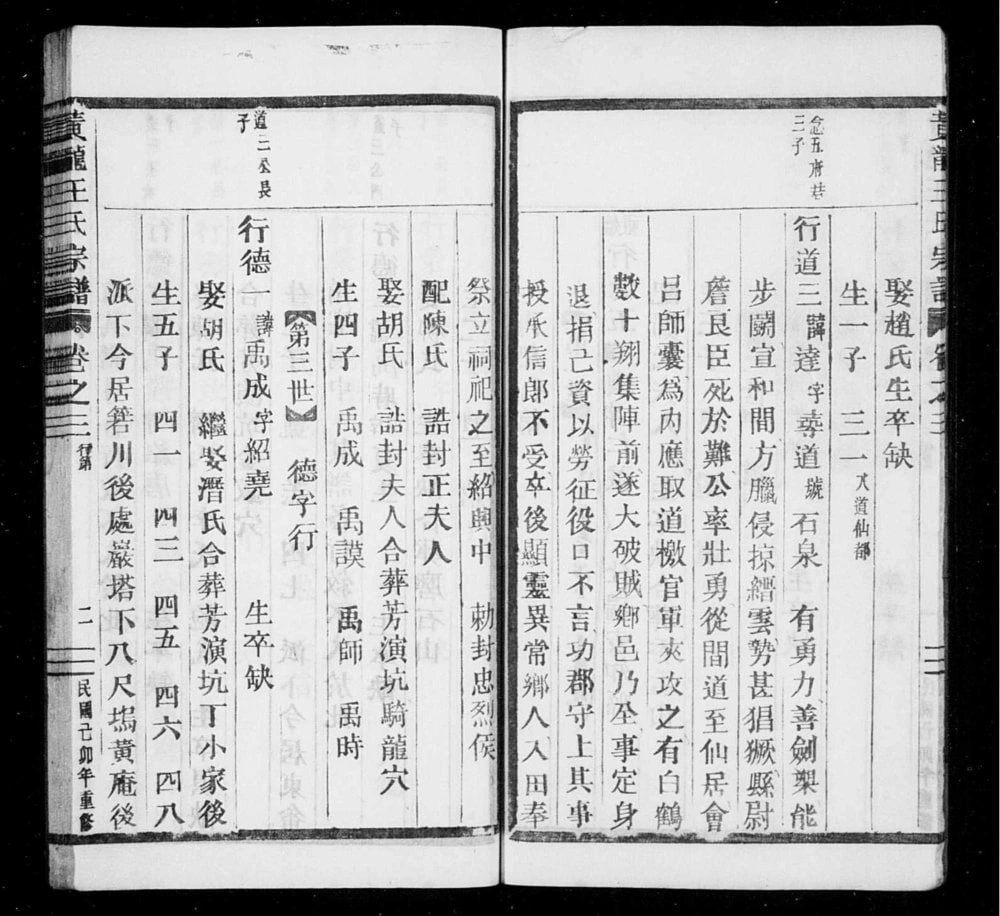 黃龍王氏宗譜 卷之三
娶趙氏生卒缺
生一子 三一 入道仙都
念五府君
三子
行道三 諱達 字 道 號石泉 有勇力善劍槊能
步鬬宣和間方臘侵掠縉雲勢甚猖獗縣尉
詹良臣死於難公率壯勇從間道至仙居會
呂師囊爲內應取道檄官軍夾攻之有白鶴
數十翔集陣前遂大破賊鄉邑乃全事定身
退捐己資以勞征役口不言功郡守上其事
授承信郎不受卒後顯靈異常鄉人入田奉
祭立祠祀之至紹興中 勅封忠烈侯
配陳氏 誥封正夫人
娶胡氏 誥封夫人合葬芳演坑騎龍穴
生四子 禹成 禹謨 禹師 禹時
【第三世】 德字行
道三公長
子
行德一 諱禹成 字紹堯 生卒缺
娶胡氏 繼娶潛氏合葬芳演坑丁小家後
生五子 四一 四三 四五 四六 四八
派下今居 川後處巖塔下八尺塢黃庵後
黃龍王氏宗譜 卷之三 行第 二 民國己卯年重修